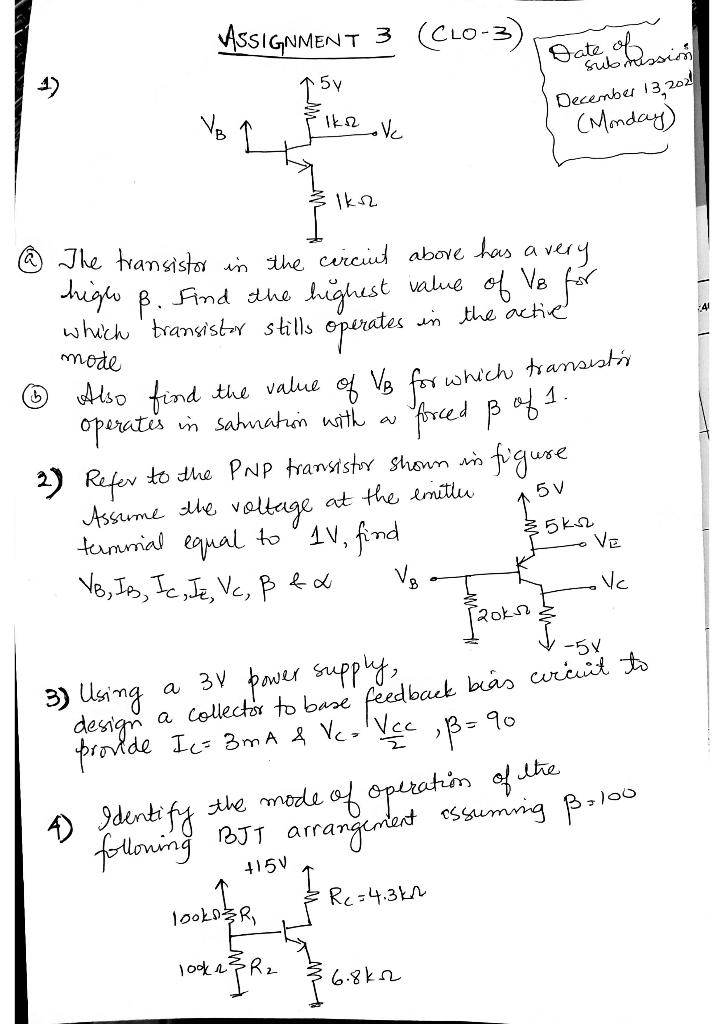 ASSIGNMENT 3 (CLO-3)
Date of
submission
December 13, 202
(Monday)
1)
5V
1kΩ
VB
VC
1kΩ
(a) The transistor in the circuit above has a very
high β. Find the highest value of VB for
which transistor stills operates in the active
mode
(b) Also find the value of VB for which transistor
operates in saturation with a forced β of 1.
2) Refer to the PNP transistor shown in figure
Assume the voltage at the emitter
terminal equal to 1V, find
VB, IB, IC, IE, VC, β & α
5V
5kΩ
VE
VB
VC
20kΩ
-5V
3) Using a 3V power supply,
design a collector to base feedback bias circuit to
provide IC = 3mA & VC = VCC/2, β = 90
4) Identify the mode of operation of the
following BJT arrangement assuming β = 100
+15V
RC = 4.3kΩ
100kΩ R1
100kΩ R2
6.8kΩ